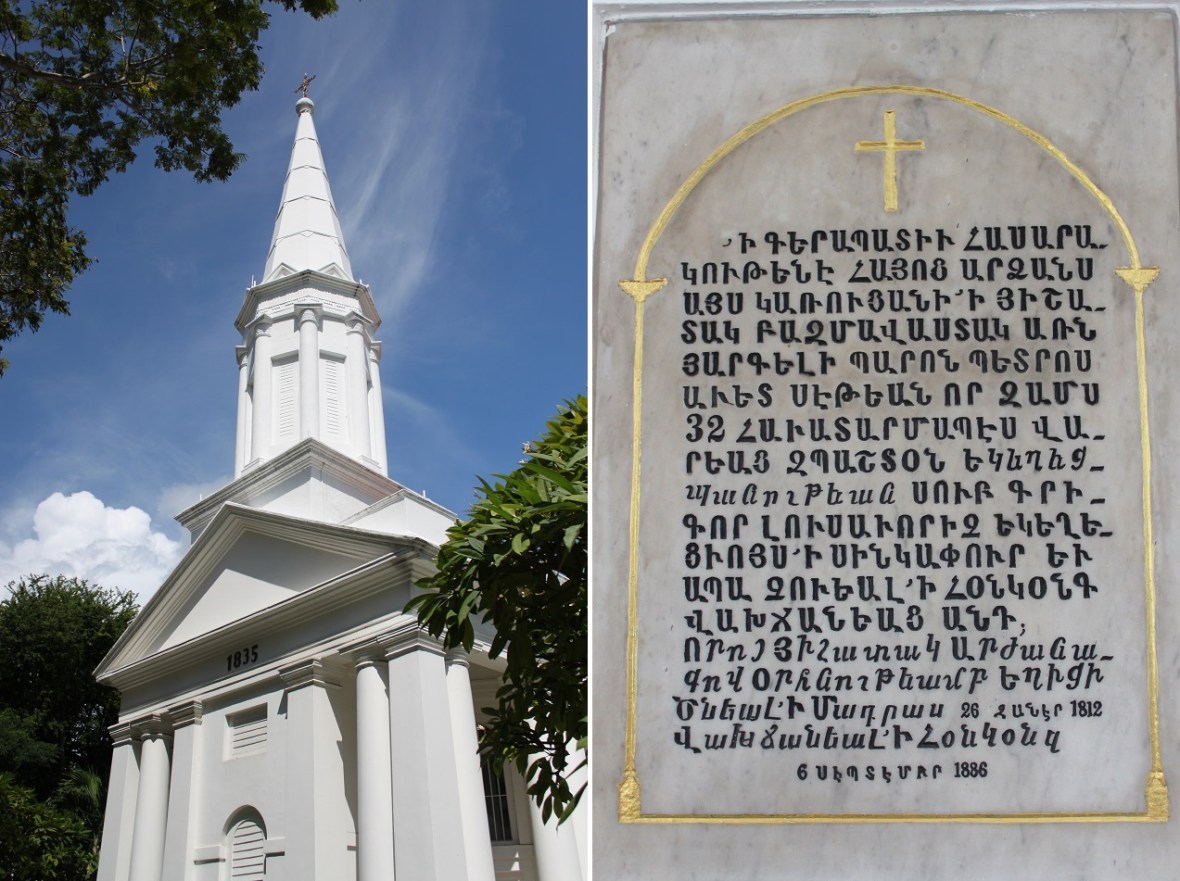 1835
՚Ի ԳԵՐԱՊԱՏԻՒ ՀԱՍԱՐԱ-
ԿՈՒԹԵՆԷ ՀԱՅՈՑ ԱՐՁԱՆՍ
ԱՅՍ ԿԱՌՈՒՑԱՆԻ ՚Ի ՅԻՇԱ-
ՏԱԿ ԲԱԶՄԱՎԱՍՏԱԿ ԱՌՆ
ՅԱՐԳԵԼԻ ՊԱՐՈՆ ՊԵՏՐՈՍ
ԱՒԵՏ ՍԷԹԵԱՆ ՈՐ ԶԱՄՍ
32 ՀԱՒԱՏԱՐՄԱՊԷՍ ՎԱ-
ՐԵԱՑ ԶՊԱՇՏՕՆ ԵԿԵՂԵՑ-
ՊԱՆՈՒԹԵԱՆ ՍՈՒԲ ԳՐԻ-
ԳՈՐ ԼՈՒՍԱՒՈՐԻՉ ԵԿԵՂԵ-
ՑՒՈՅՍ ՚Ի ՍԻՆԿԱՓՈՒՐ ԵՒ
ԱՊԱ ՉՈՒԵԱԼ ՚Ի ՀՕՆԿՕՆԳ
ՎԱԽՃԱՆԵԱՑ ԱՆԴ,
ՈՐՈՅ ՅԻՇԱՏԱԿ ԱՐԺԱՆԱ-
ԳՈՎ ՕՐՀՆՈՒԹԵԱՄԲ ԵՂԻՑԻ
ԾՆԵԱԼ ՚Ի Մադրաս 26 ՅԱՆՎԷՐ 1812
ՎԱԽՃԱՆԵԱԼ ՚Ի ՀՕՆԿՕՆԳ
6 ՍԷՊՏԷՄԲՐ 1886